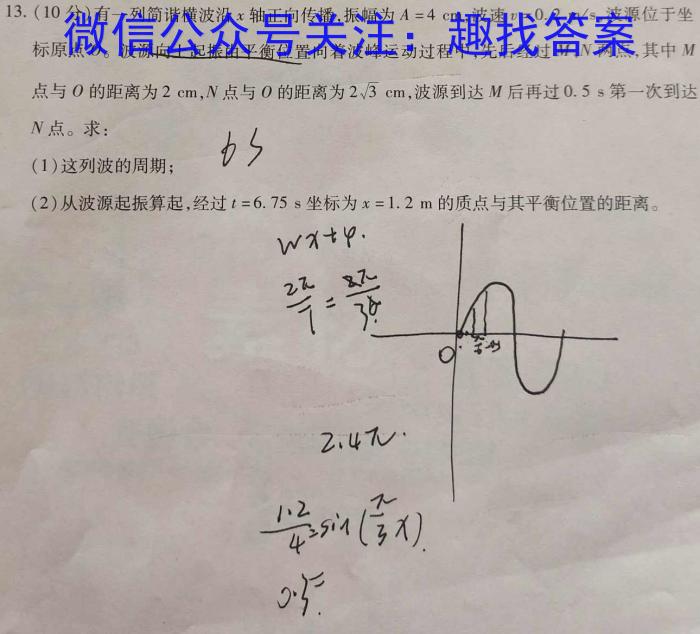 13.(10分)有一列简谐横波沿x轴正向传播,振幅为A=4 cm,波速v=0.2 m/s,波源位于坐
微信公众号关注：趣找答案
标原点O。波源向上起振由平衡位置向着波峰运动过程中,先后经过M、N两点,其中M
点与O的距离为2 cm,N点与O的距离为2√3 cm,波源到达M后再过0.5 s第一次到达
N点。求:
6S
(1)这列波的周期;
(2)从波源起振算起,经过t=6.75 s坐标为x=1.2 m的质点与其平衡位置的距离。
wx+φ.
2π/T =
O
2.4π.
1.2/4 = sin(π/3 x).